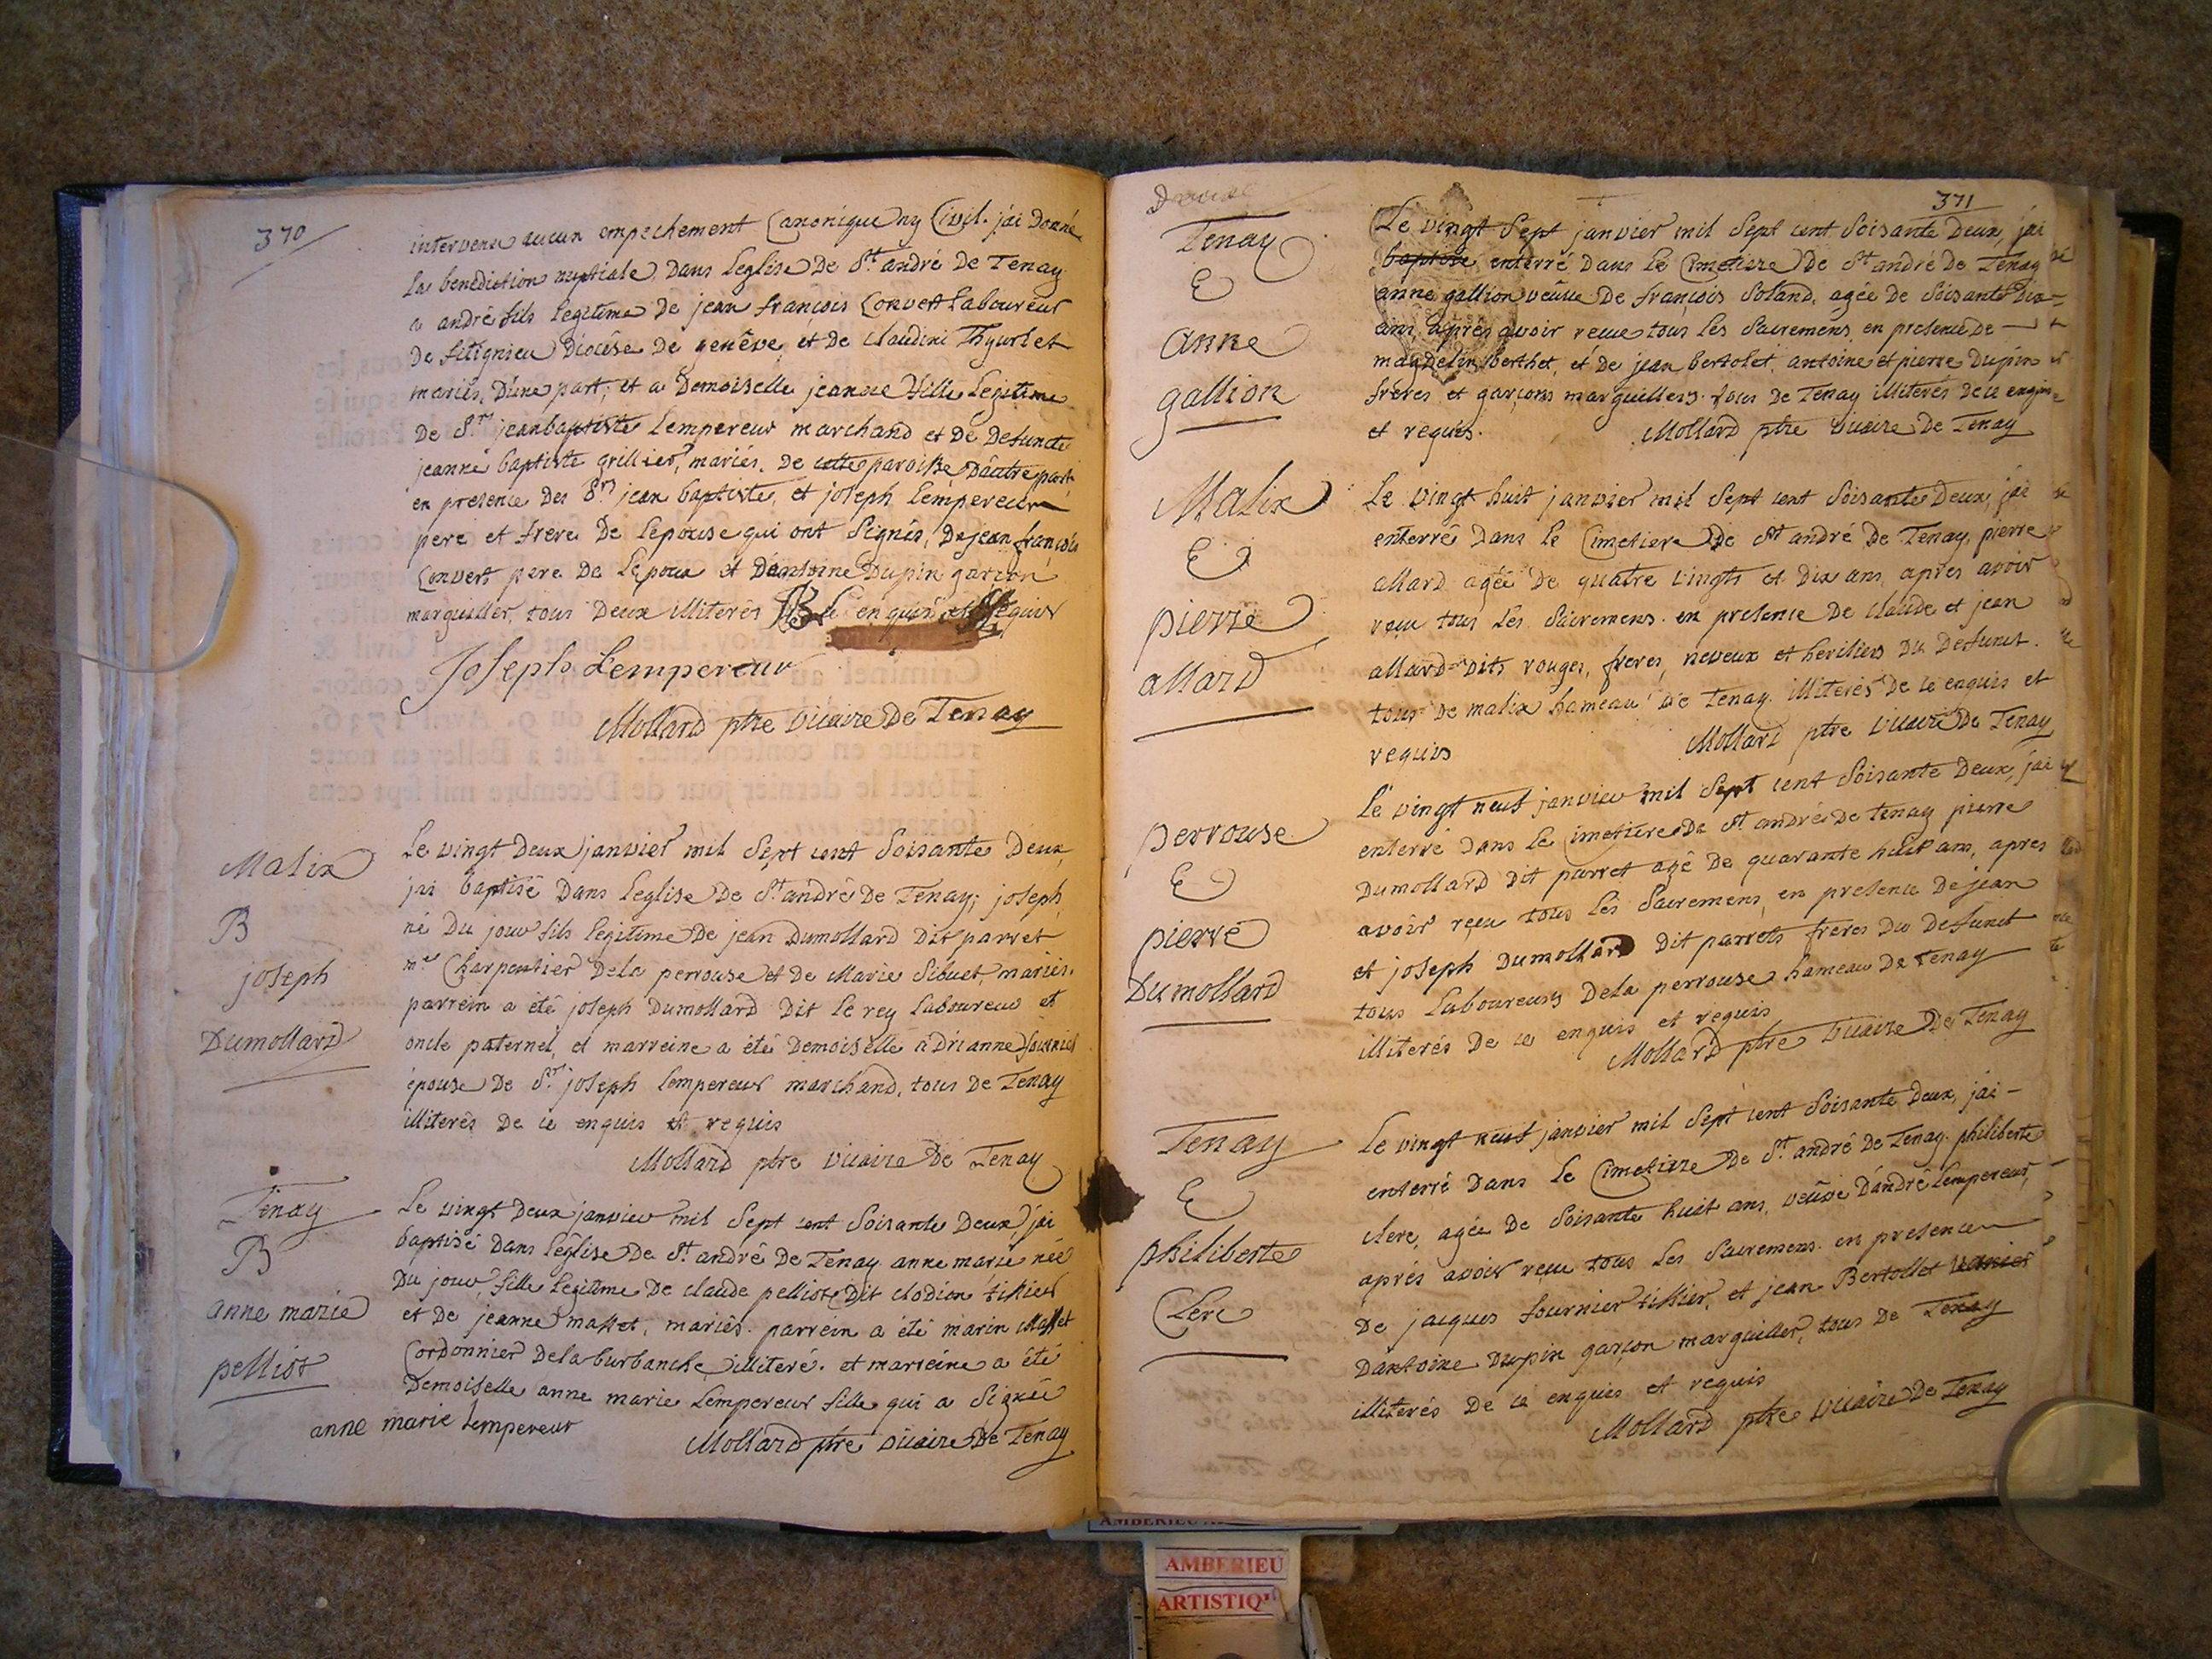 370
intervenu aucun empechement Canonique ny Civil. j'ai Donné
la benediction nuptiale, Dans leglise De St. andré de Tenay
a andré fils legitime De jean francois Convert laboureur
De Diocèse De genêve, et de Claudine
mariés, D'une part; et a Demoiselle jeanne fille legitime
De Sr. jeanbaptiste Lempereur marchand et De Defuncte
jeanne baptiste grillier, mariés. De cette paroisse D'autre part
en presence Des Srs jean baptiste, et joseph Lempereur
pere et frere De lepouse qui ont Signés, De jean francois
Convert pere De lepoux et D'antoine Dupin garçon
marguiller, tous Deux illiterés De ce enquis et requis
Joseph Lempereur
Mollard ptre vicaire De Tenay
Malix
B
joseph
Dumollard
Le vingt Deux janvier mil Sept cent Soisante Deux
jai baptisé Dans leglise De St. andré De Tenay; joseph
né Du jour fils legitime De jean Dumollard Dit parret
me Charpentier Dela perrouse et De Marie Sibuet, mariés.
parrein a été joseph Dumollard Dit le rey laboureur et
oncle paternel, et marreine a été Demoiselle adrianne fournier
épouse De Sr. joseph Lempereur marchand, tous De Tenay
illiterés De ce enquis et requis
Mollard ptre vicaire De Tenay
Tenay
B
anne marie
pelliot
Le vingt Deux janvier mil Sept cent Soisante Deux, j'ai
baptisé Dans léglise De St. andrê De Tenay. anne marie née
Du jour, fille legitime De claude pelliot Dit clodion tissier
et De jeanne masset, mariês. parrein a été marin Masset
Cordonnier Dela burbanche illiteré. et marreine a été
Demoiselle anne marie Lempereur fille qui a Signée
anne marie lempereur
Mollard ptre vicaire De Tenay
371
Tenay
E
anne
gallion
Le vingt Sept janvier mil Sept cent Soisante Deux, j'ai
baptisé enterré Dans Le Cimetiere De St andrê De Tenay
anne gallion veûve De francois Soland, agée De Soisante Dix
ans, après avoir receue tous les Sacremens, en presence De
magdelin berthet, et De jean bertolet, antoine et pierre Dupin
frères et garçons marguillers. tous De Tenay illiterés De ce enquis
et requis.
Mollard ptre vicaire De Tenay
Malix
E
pierre
allard
Le vingt huit janvier mil Sept cent Soisante Deux, j'ai
enterré Dans le Cimetiere De St andrê De Tenay, pierre
allard agée De quatre vingts et Dix ans, apres avoir
reçu tous les Sacremens. en presence De claude et jean
allard Dits rouges, freres, neveux et heritiers Du Defunct.
tous De malix hameau De Tenay. illiterés De ce enquis et
requis
Mollard ptre vicaire De Tenay
perrouse
E
pierre
Dumollard
Le vingt neuf janvier mil Sept cent Soisante Deux, j'ai
enterré Dans le Cimetiere De St andrê De Tenay pierre
Dumollard Dit parret agê De quarante huit ans, apres
avoir reçu tous les Sacremens, en presence De jean
et joseph Dumollard Dit parrets frères Du Defunct
tous laboureurs Dela perrouse hameau De Tenay
illiterés De ce enquis et requis
Mollard ptre vicaire De Tenay
Tenay
E
philiberte
Clerc
Le vingt neuf janvier mil Sept cent Soisante Deux, j'ai
enterré Dans le Cimetiere De St. andrê De Tenay. philiberte
clerc, agée De Soisante huit ans, veûve D'andrê Lempereur,
aprés avoir receu tous les Sacremens. en presence
De jacques fournier tissier, et jean Bertollet
D'antoine Dupin garçon marguiller, tous De Tenay
illiterés De ce enquis et requis
Mollard ptre vicaire De Tenay
AMBERIEU
ARTISTIQ